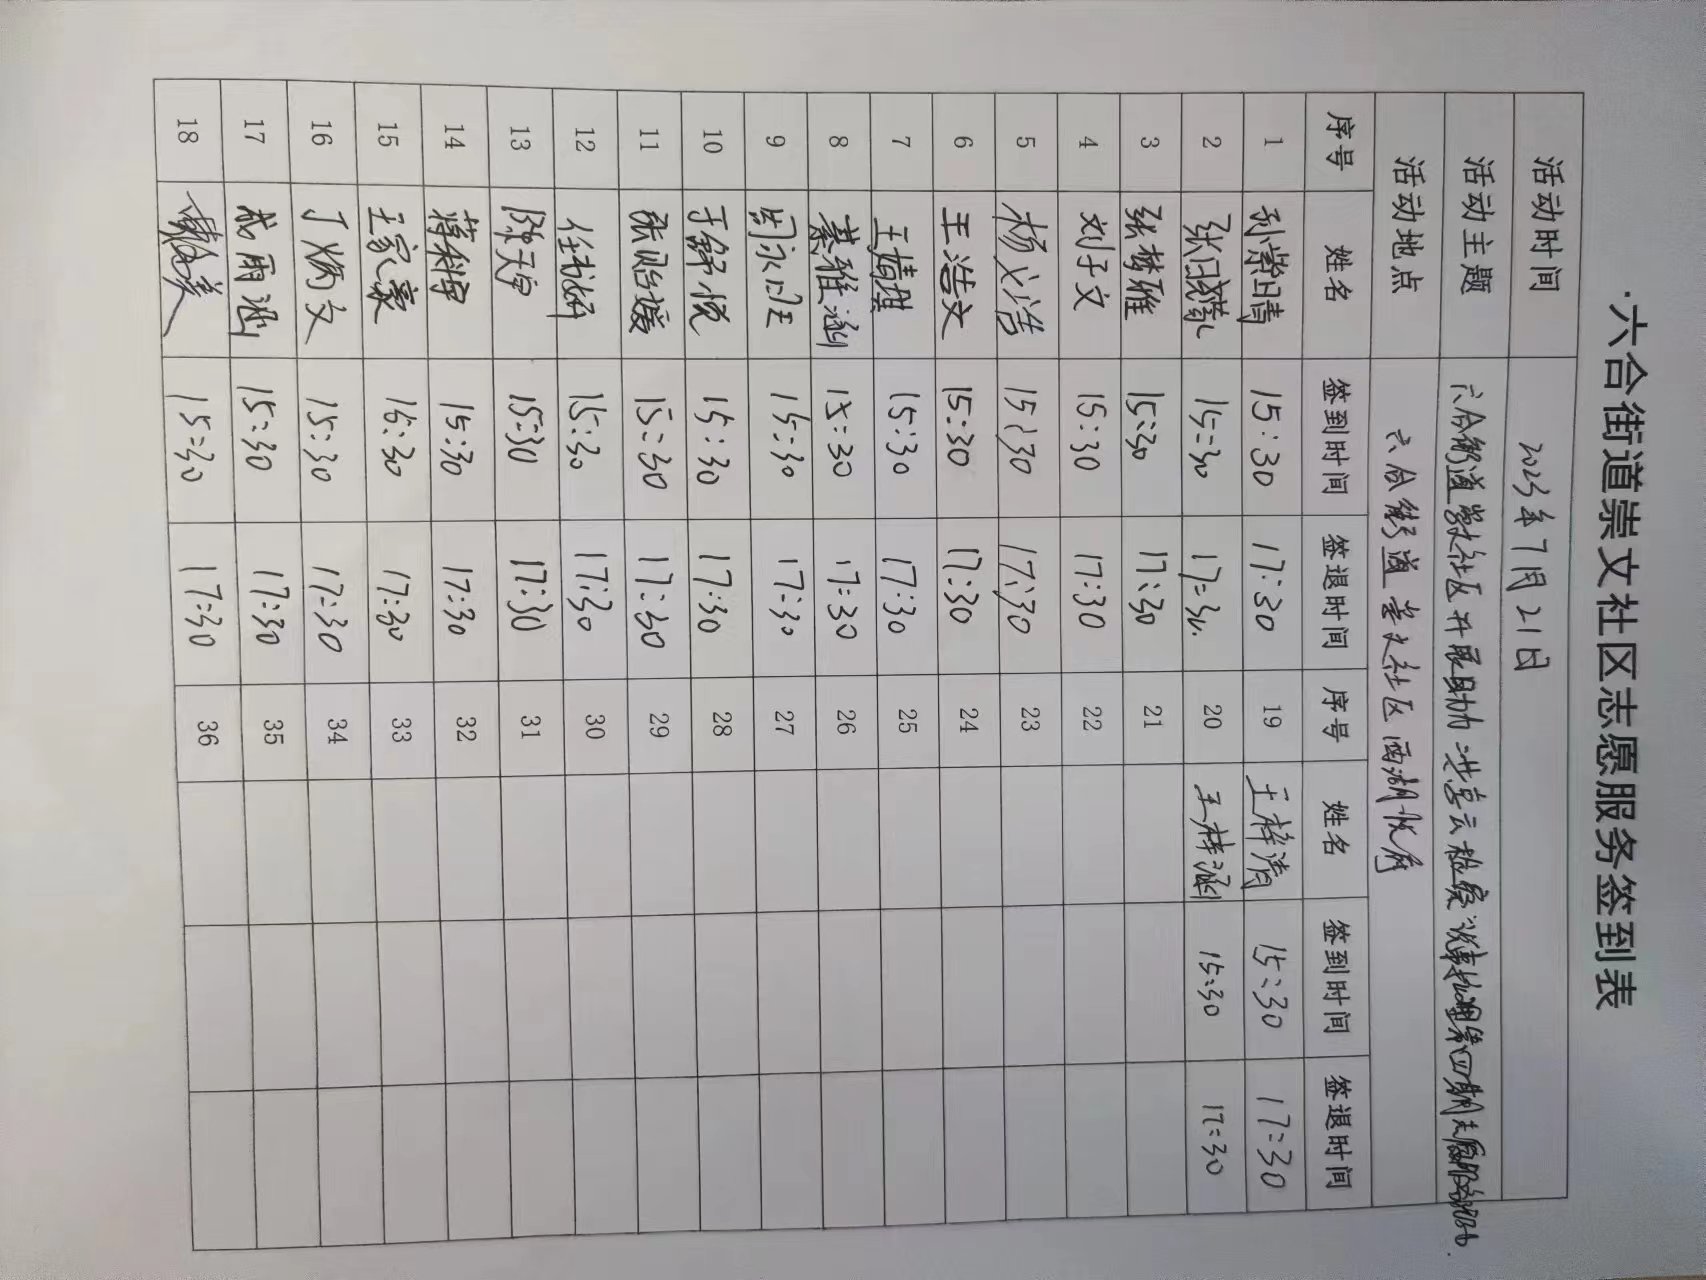 六合街道崇文社区志愿服务签到表
活动时间 2023年7月21日
活动主题 六合街道崇文社区开展助力
活动地点 六合街道崇文社区西湖悦府
序号 姓名 签到时间 签退时间 序号 姓名 签到时间 签退时间
1 孙紫晴 15:30 17:30 19 王梓涛 15:30 17:30
2 15:30 17:30 20 王梓涵 15:30 17:30
3 张梦雅 15:30 17:30 21
4 刘子文 15:30 17:30 22
5 杨义浩 15:30 17:30 23
6 王浩文 15:30 17:30 24
7 王婧琪 15:30 17:30 25
8 綦雅涵 15:30 17:30 26
9 15:30 17:30 27
10 于舒悦 15:30 17:30 28
11 张贻媛 15:30 17:30 29
12 15:30 17:30 30
13 15:30 17:30 31
14 蒋科宇 15:30 17:30 32
15 王家豪 15:30 17:30 33
16 丁炳文 15:30 17:30 34
17 成雨涵 15:30 17:30 35
18 15:30 17:30 36